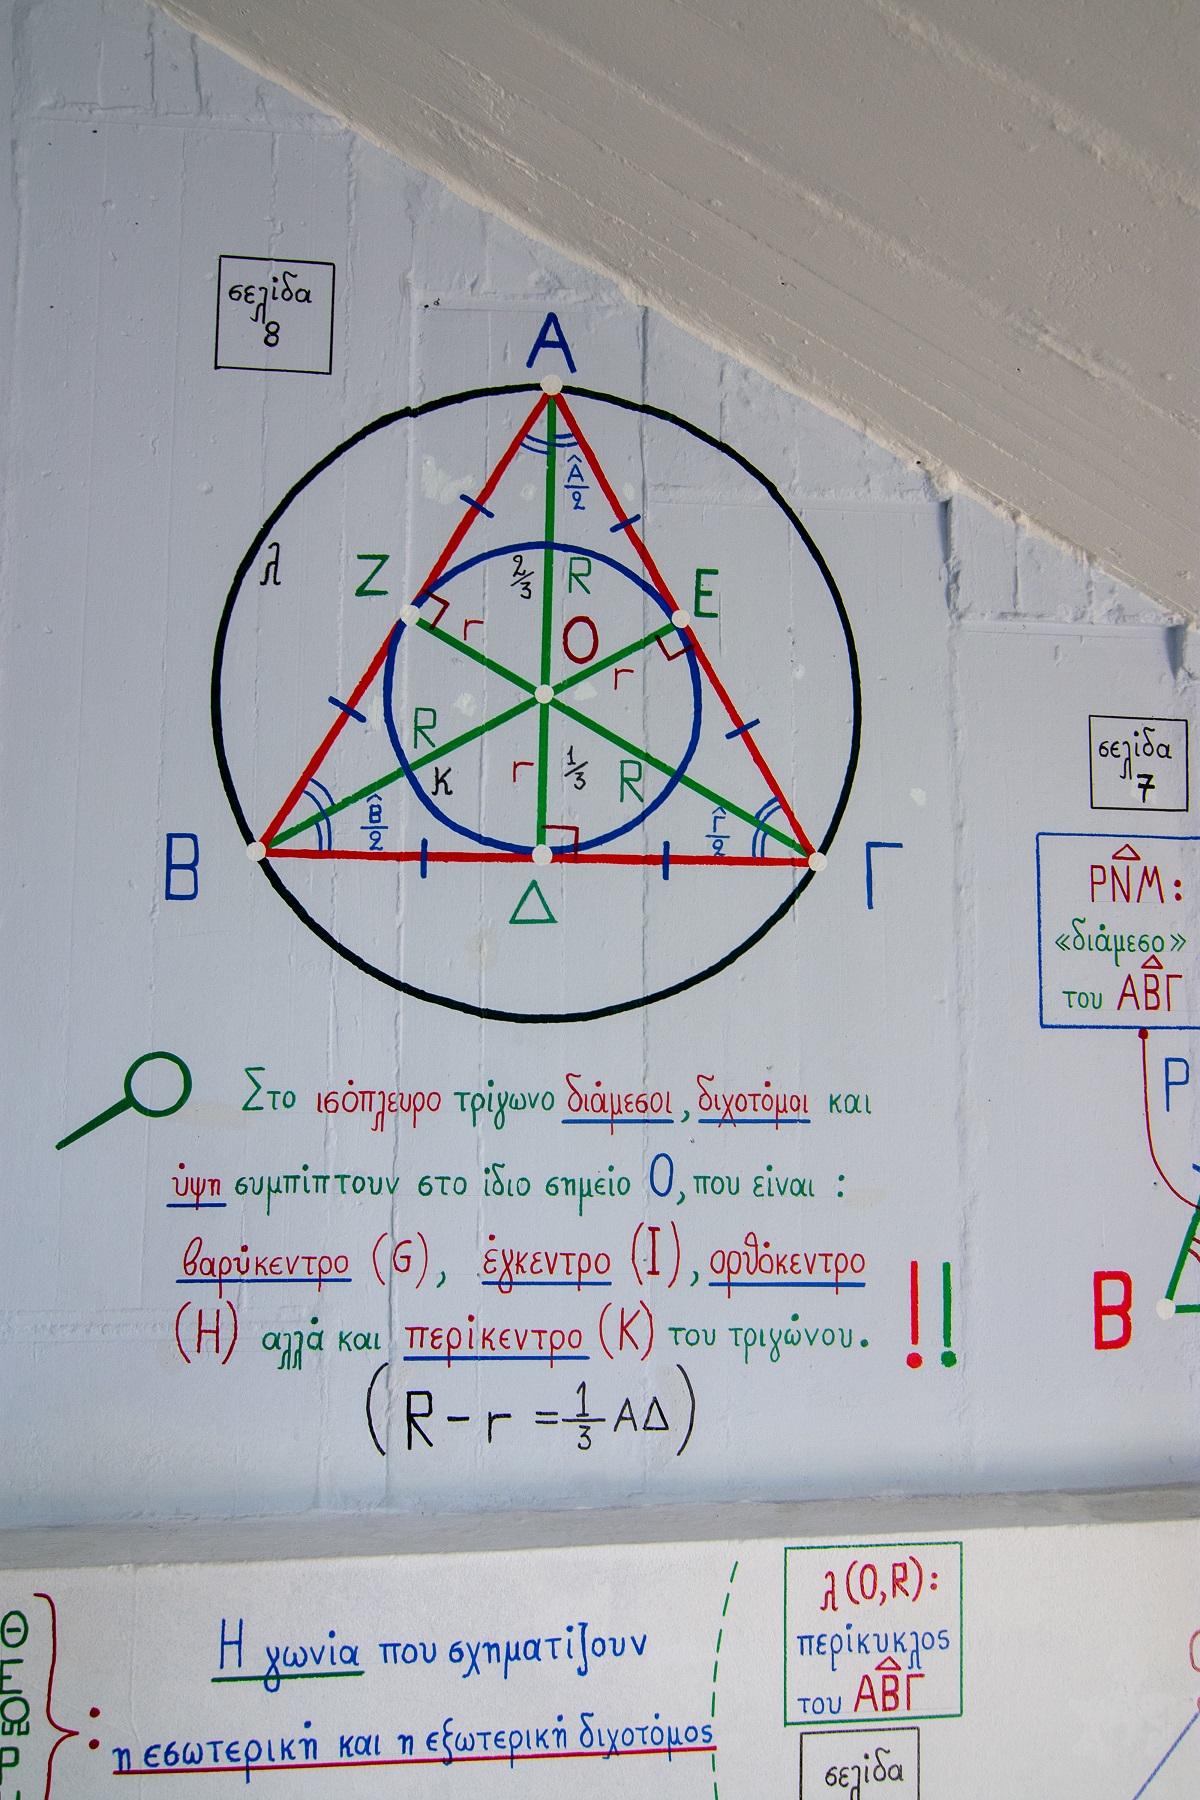 σελίδα
8
Α
Â/2
λ
Ζ
2/3
R
Ε
r
Ο
r
R
κ
r
1/3
R
Β̂/2
Γ̂/2
Β
Δ
Γ
σελίδα
7
ΡΝΜ:
«διάμεσο»
του ΑΒΓ
Ρ
Β
Στο ισόπλευρο τρίγωνο διάμεσοι, διχοτόμοι και
ύψη συμπίπτουν στο ίδιο σημείο Ο, που είναι :
βαρύκεντρο (G), έγκεντρο (Ι), ορθόκεντρο
(Η) αλλά και περίκεντρο (Κ) του τριγώνου. !!
(R - r = 1/3 ΑΔ)
Η γωνία που σχηματίζουν
η εσωτερική και η εξωτερική διχοτόμος
λ(Ο,R):
περίκυκλος
του ΑΒΓ
σελίδα